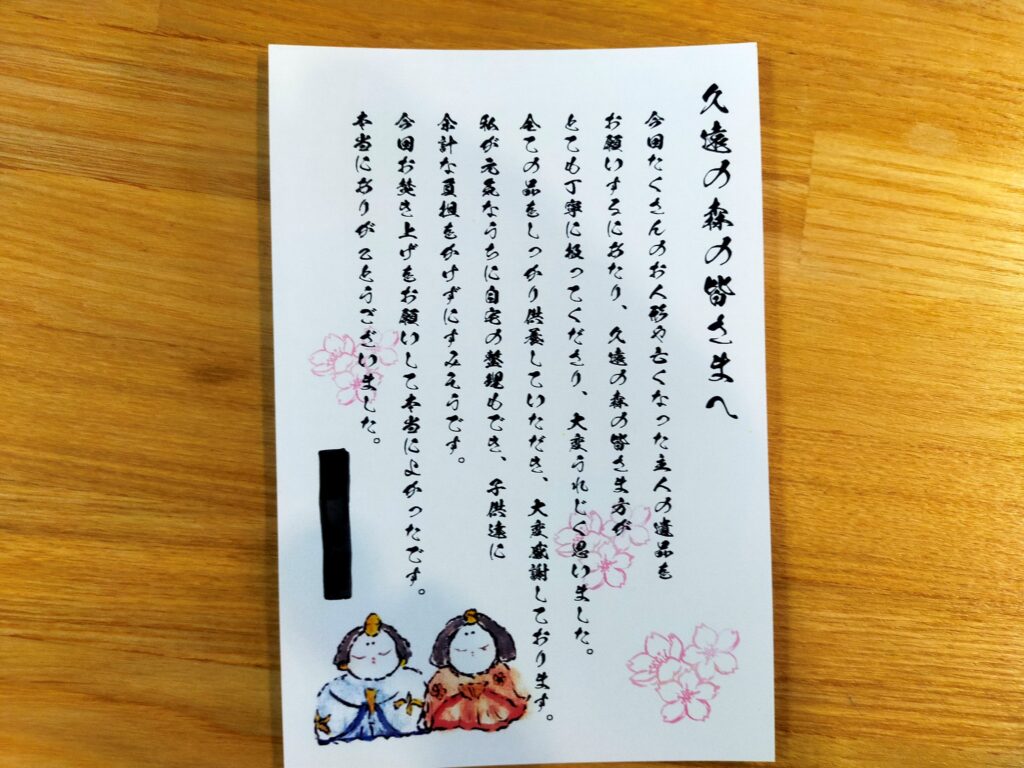 久遠の森の皆さまへ
今回たくさんのお人形や亡くなった主人の遺品を
お願いするにあたり、久遠の森の皆さま方が
とても丁寧に扱ってくださり、大変うれしく思いました。
全ての品をしっかり供養していただき、大変感謝しております。
私が元気なうちに自宅の整理もでき、子供達に
余計な負担をかけずにすみそうです。
今回お焚き上げをお願いして本当によかったです。
本当にありがとうございました。